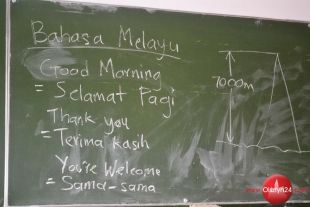 Bahasa Melayu
Good Morning
= Selamat Pagi
Thank you
= Terima kasih
You're Welcome
= Sama-sama
7000m
www.Olsztyn24.com